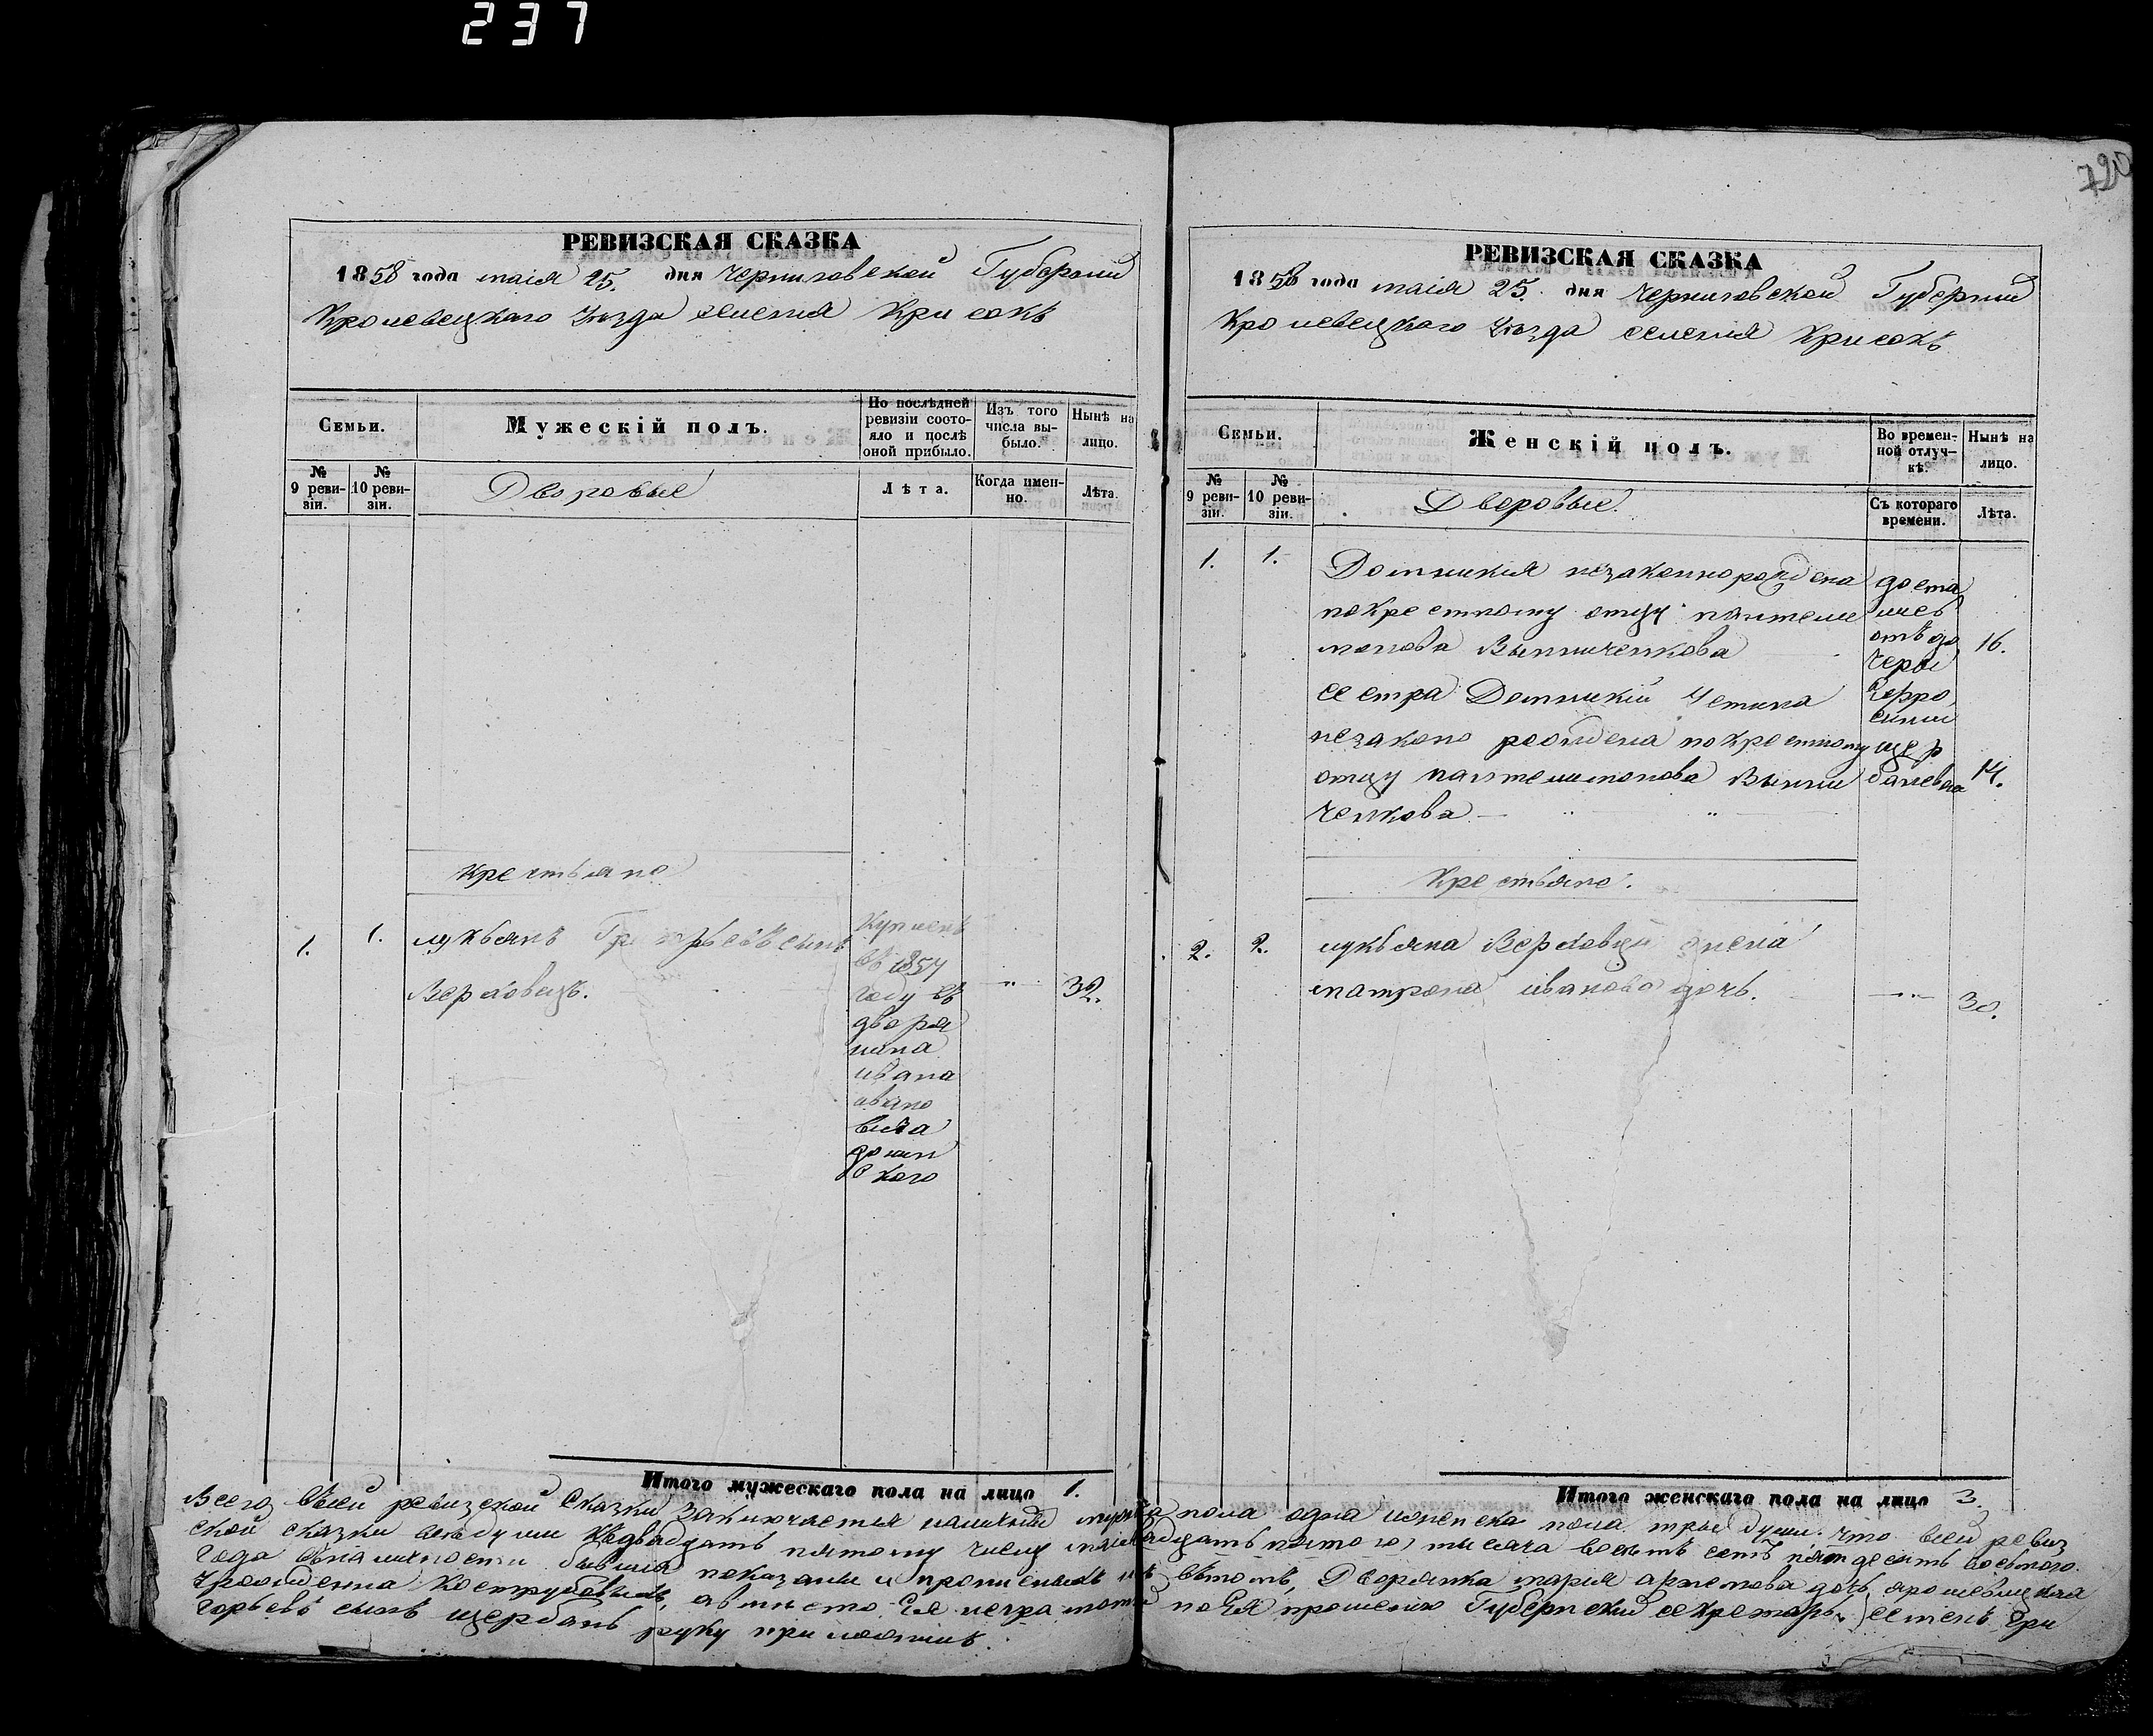 237
720
РЕВИЗСКАЯ СКАЗКА
1858 года маія 25. дня Черниговской Губерніи
Кролевецкаго Уѣзда селенія Крисокъ
Семьи.
Мужескій полъ.
По послѣдней ревизіи состояло и послѣ оной прибыло.
Изъ того числа выбыло.
Нынѣ на лицо.
№ 9 ревизіи.
№ 10 ревизіи.
Дворовые
Лѣта.
Когда именно.
Лѣта.
Крестьяне
1.
1.
лукьянъ Григорьевъ сынъ
Верховецъ.
Купленъ
въ 1857
году въ
дворя
нина
ивана
ивано
вича
" 32.
Итого мужескаго пола на лицо 1.
РЕВИЗСКАЯ СКАЗКА
1858 года маія 25. дня Черниговской Губерніи
Кролевецкаго Уѣзда селенія Крисокъ
Семьи.
Женскій полъ.
Во временной отлучкѣ.
Нынѣ на лицо.
№ 9 ревизіи.
№ 10 ревизіи.
Дворовые.
Съ котораго времени.
Лѣта.
1.
1.
Домникія незаконнорождена
покрестному отцу пантели
монова Винниченкова
сестра Домникіи Устина
незаконо рождена покрестному
отцу пантелимонова Винни
ченкова
доста
лись
отъ до
чери
Ефро
синии
щер
баневой
16.
14.
Крестьяне.
2.
2.
лукьяна Верховца жена
матрона иванова дочь.
" 30.
Итого женскаго пола на лицо 3.
Всего въсей ревизской Сказки заключается налицо мужска пола одна ионенска пола три души. что всей ревиз
ской сказки вседуши къдвадцать пятому числу маія двадцать пятого, тысяча восемъ сотъ пятдесятъ восьмого
года вналичности бывшия показаны и прописныхъ нѣтъ вътомъ, Дворянка мария артемова дочь
урожденна Кострубовыхъ, авместо Ея неграмотной поЕя прошению Губернский секретарь, семенъ Гри
горьевъ сынъ щербань руку приложилъ.